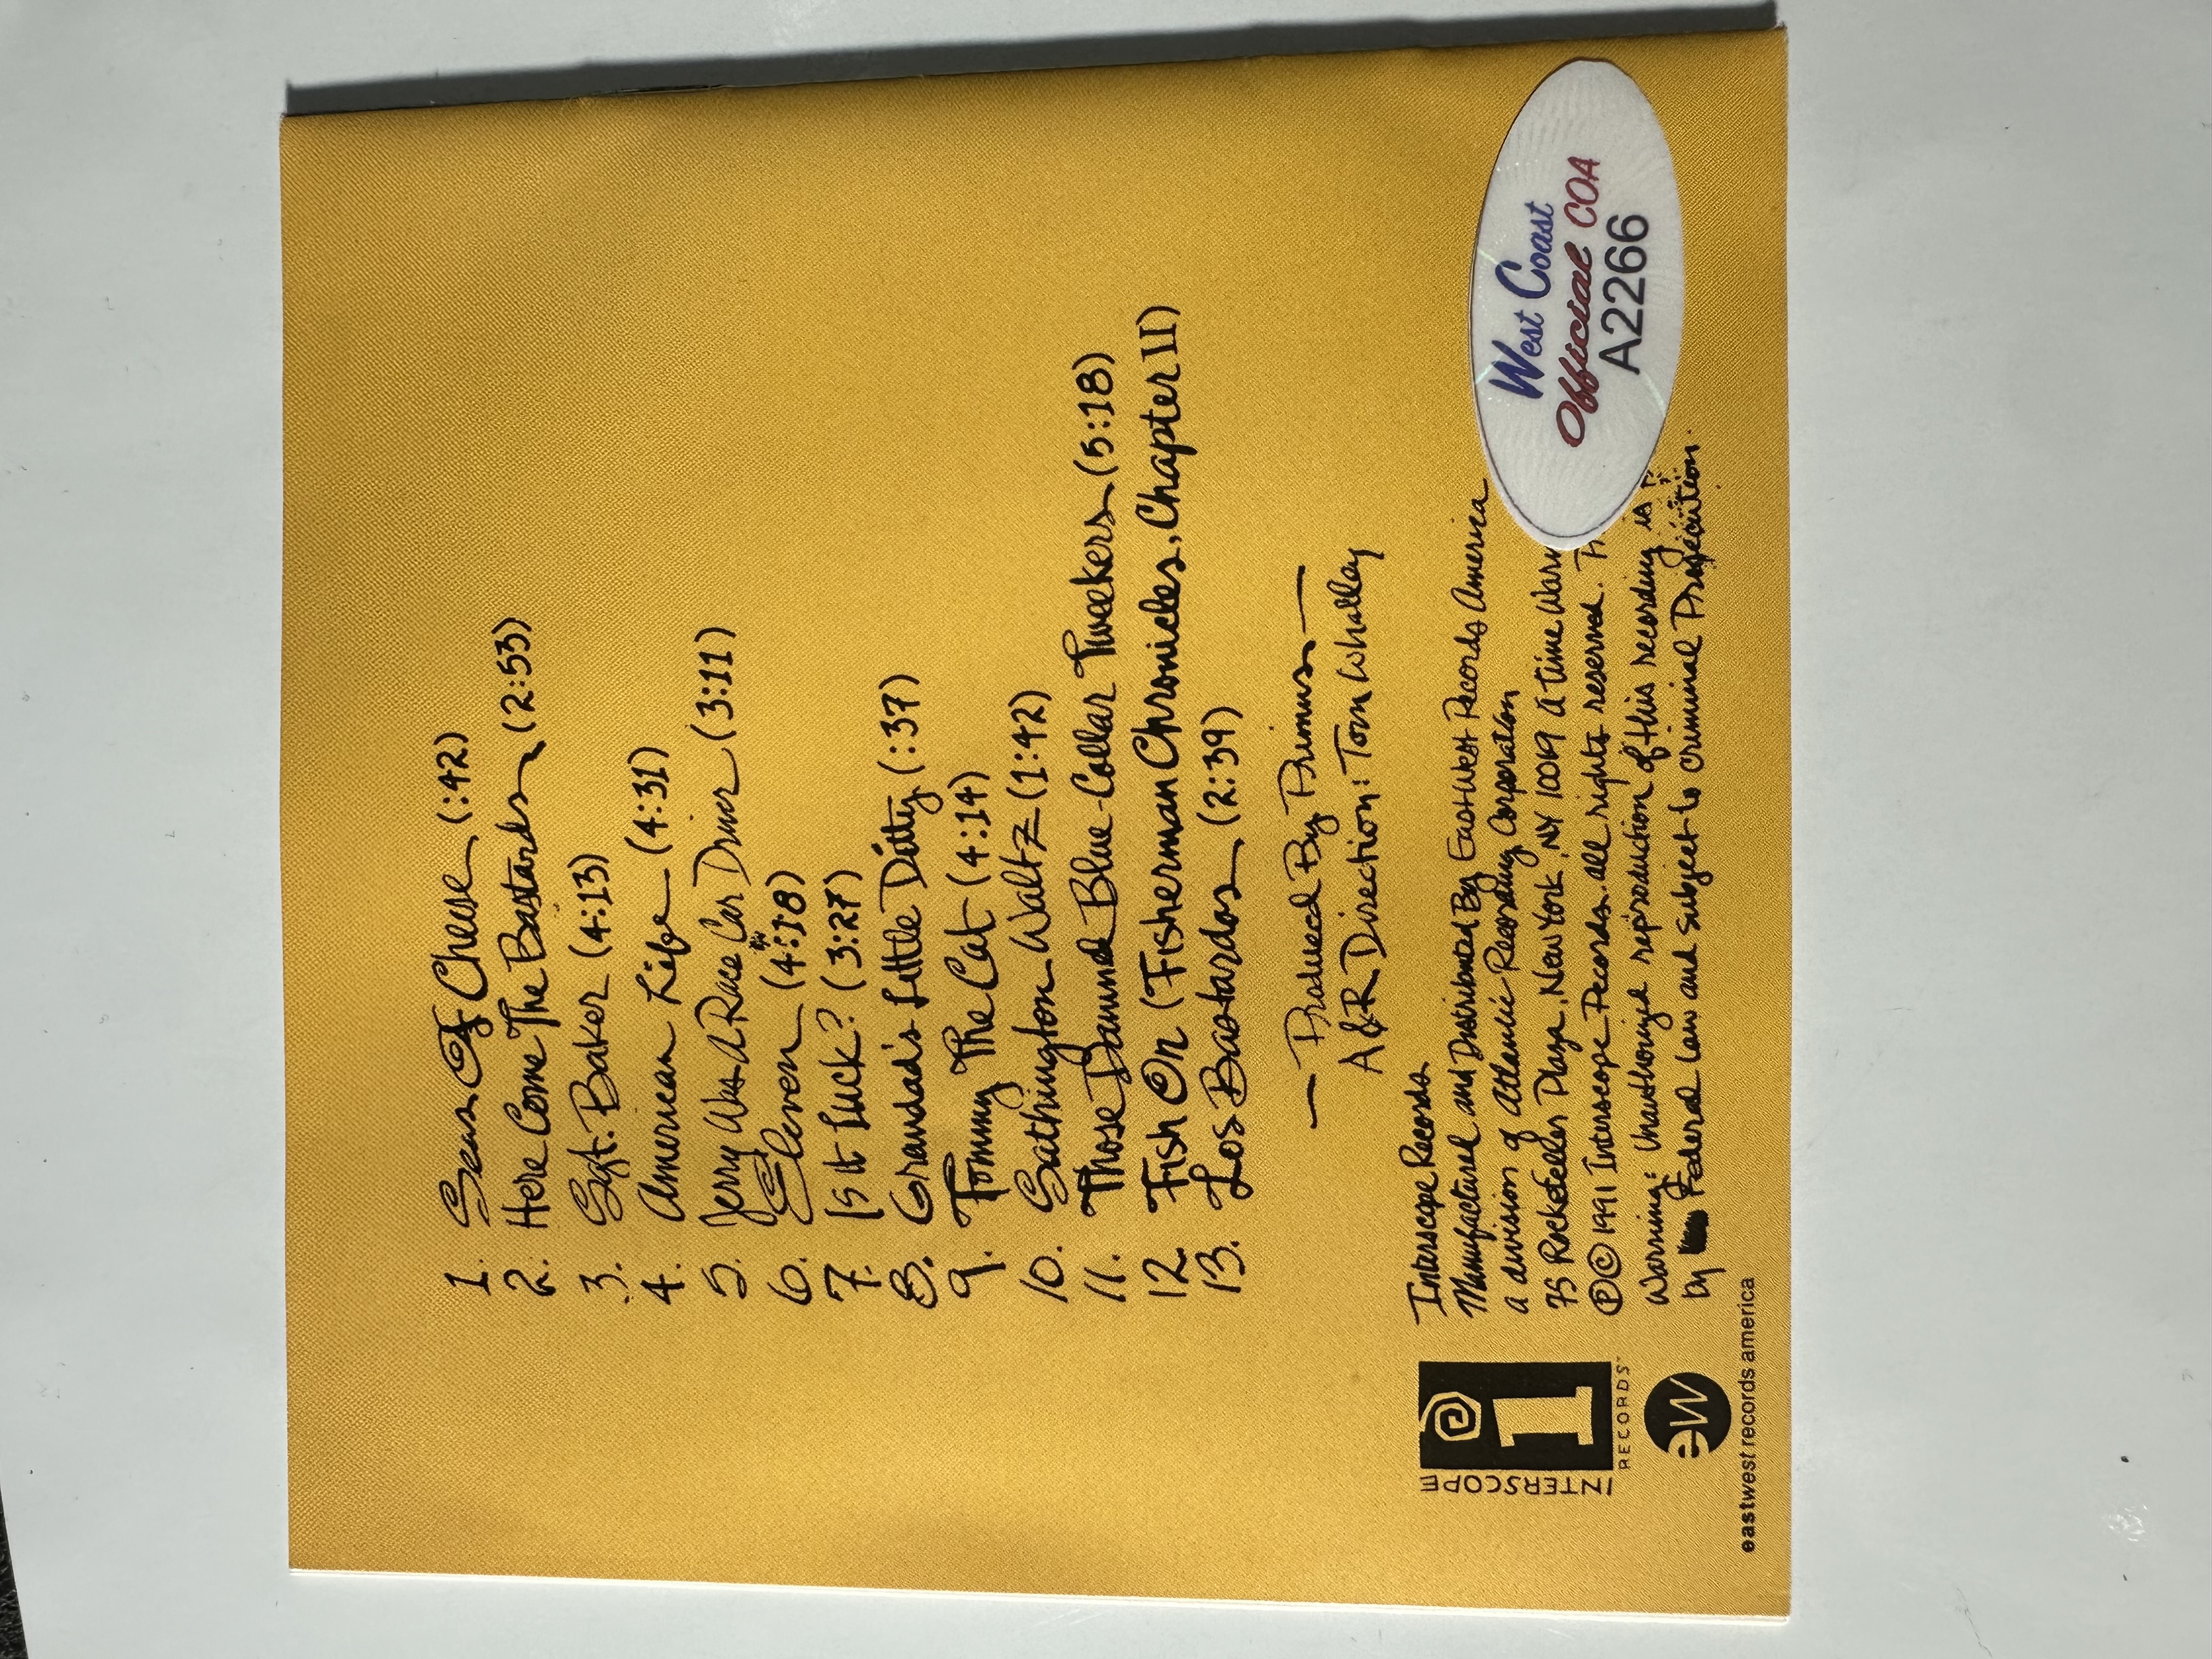 1. Seas Of Cheese (:42)
2. Here Come The Bastards (2:53)
3. Sgt. Baker (4:13)
4. American Life (4:31)
5. Jerry Was A Race Car Driver (3:11)
6. Eleven (4:18)
7. Is It Luck? (3:27)
8. Grandad's Little Ditty (:37)
9. Tommy The Cat (4:14)
10. Sathington Waltz (1:42)
11. Those Damned Blue-Collar Tweekers (5:18)
12 Fish On (Fisherman Chronicles, Chapter II)
13. Los Bastardos (2:39)
— Produced By Primus —
A&R Direction: Tom Whalley
Interscope Records
Manufactured and Distributed By EastWest Records America
a division of Atlantic Recording Corporation
75 Rockefeller Plaza, New York, NY 10019 A Time Warn
℗© 1991 Interscope Records. all rights reserved.
Warning: Unauthorized reproduction of this recording is
by Federal law and subject to Criminal Prosecution.
INTERSCOPE
i
RECORDS™
ew
eastwest records america
West Coast
Official COA
A2266